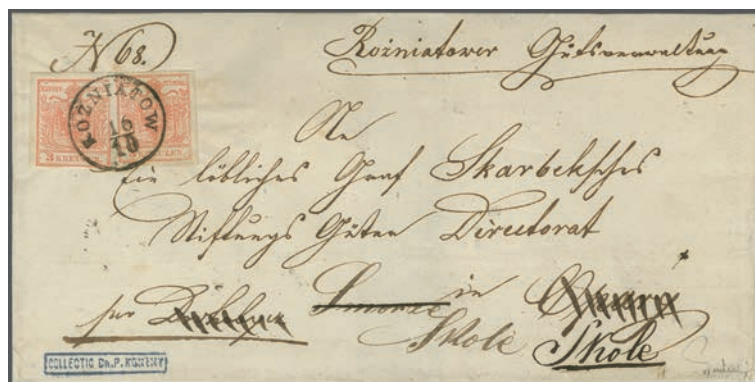 N 68.
Rozniatower Gutsverwaltung
ROŻNIATOW
16
10
3 KREUZER
An
Ein löbliches Graf Skarbeksches
Stiftungs Güter Directorat
in
Skole
Skole
COLLECTIO Dr. P.